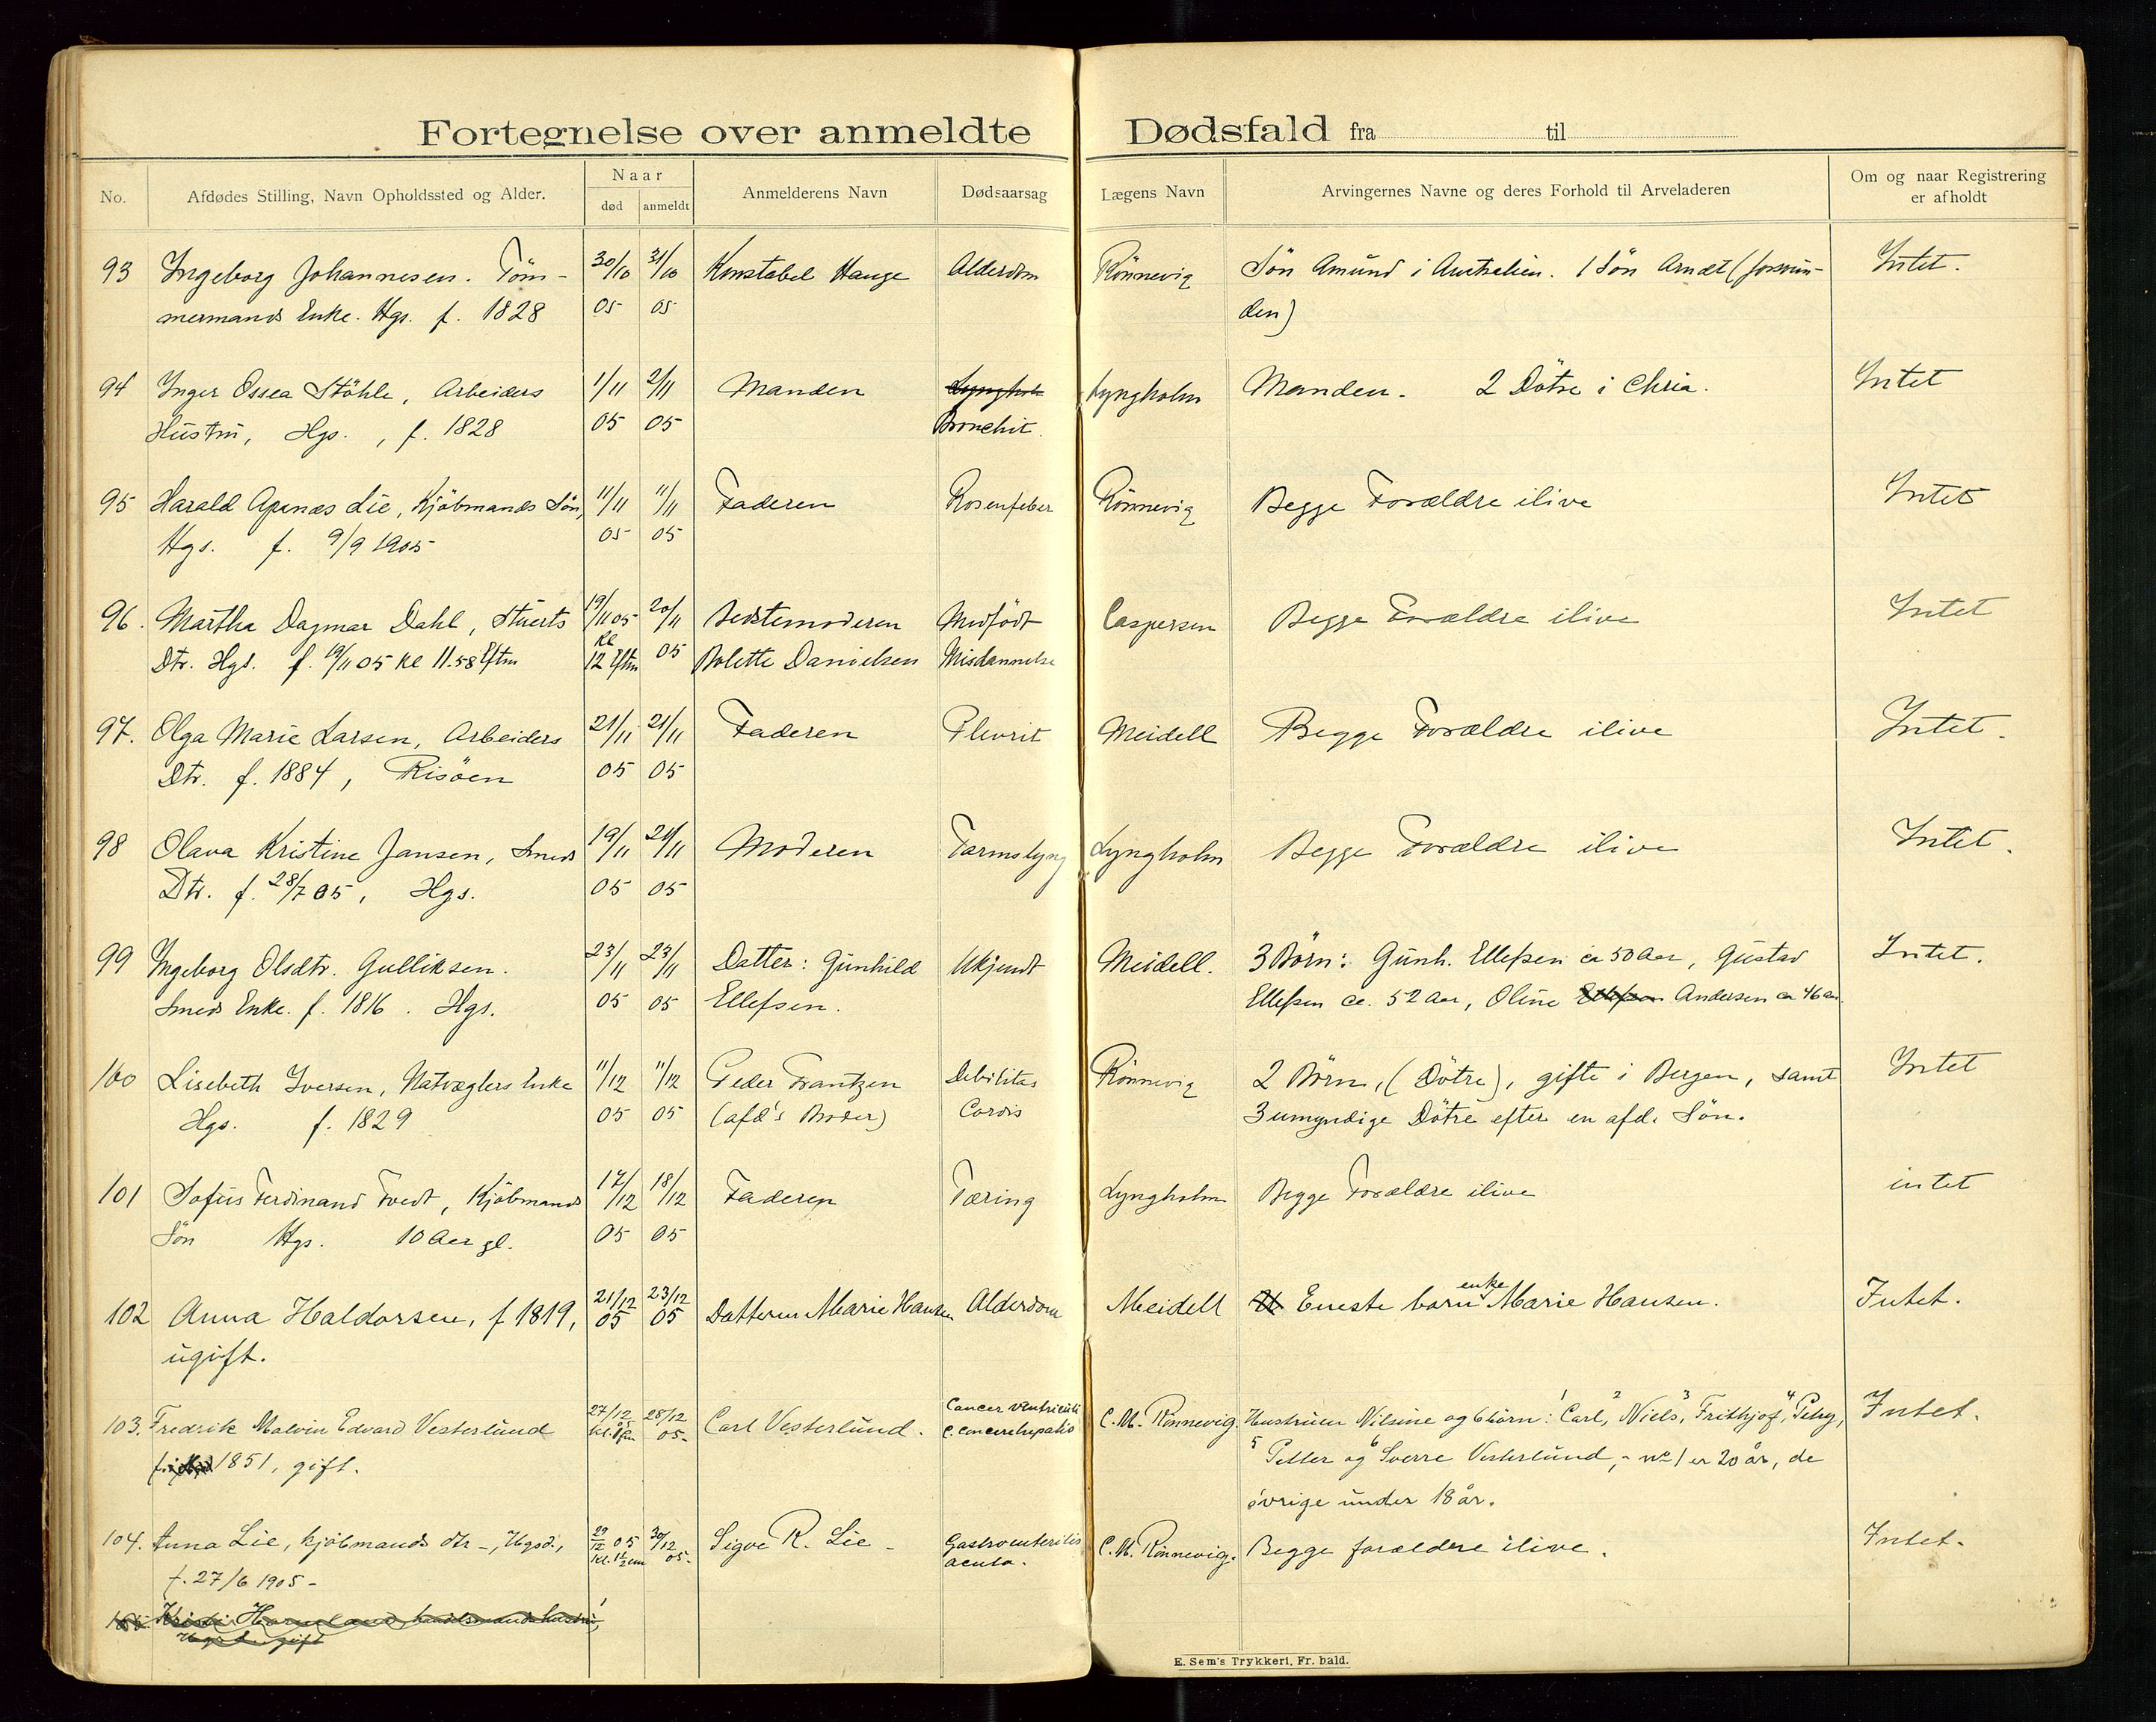 Fortegnelse over anmeldte Dødsfald fra til
No. Afdødes Stilling, Navn Opholdssted og Alder. Naar Anmelderens Navn Dødsaarsag Lægens Navn Arvingernes Navne og deres Forhold til Arveladeren Om og naar Registrering
død anmeldt er afholdt
93 Ingeborg Johannesen. Töm- 30/10 31/10 Konstabel Hauge Alderdom Rönnevig Sön Amund i Australien. 1 Sön Arndt (forsvun- Intet.
mermands Enke. Hgs. f. 1828 05 05 den)
94 Inger Ossea Stöhle, Arbeiders 1/11 2/11 Manden Lyngholm Manden. 2 Dötre i Chria. Intet
Hustru, Hgs., f. 1828 05 05 Bronchit.
95 Harald Apenæs Lie, Kjöbmands Sön, 11/11 11/11 Faderen Rosenfeber Rönnevig Begge Forældre ilive Intet
Hgs. f. 9/9 1905 05 05
96. Martha Dagmar Dahl, Stuerts 19/11 05 20/11 Bedstemoderen Medfödt Caspersen Begge Forældre ilive Intet
Dtr. Hgs. f. 19/11 05 Kl 11.58 Eftm Kl 12 Eftm 05 Bolette Danielsen Misdannelse
97. Olga Marie Larsen, Arbeiders 21/11 21/11 Faderen Plevrit Meidell Begge Forældre ilive Intet.
Dtr. f. 1884, Risöen 05 05
98 Olava Kristine Jansen, Smeds 19/11 21/11 Moderen Tarmslyng Lyngholm Begge Forældre ilive Intet.
Dtr. f. 28/7 05, Hgs. 05 05
99 Ingeborg Olsdtr. Gulliksen. 23/11 23/11 Datter: Gunhild Ukjendt Meidell. 3 Börn: Gunh. Ellefsen ca 50 Aar, Gustav Intet.
Smeds Enke. f. 1816. Hgs. 05 05 Ellefsen. Ellefsen ca. 52 Aar, Oline Ellefsen Andersen ca 46 aar.
100 Lisebeth Iversen, Natvægters Enke 11/12 11/12 Peder Frantzen Debilitas Rönnevig 2 Börn, (Dötre), gifte i Bergen, samt Intet
Hgs. f. 1829 05 05 (afd's Broder) Cordis 3 umyndige Dötre efter en afd. Sön.
101 Sofus Ferdinand Tvedt, Kjöbmands 17/12 18/12 Faderen Tæring Lyngholm Begge Forældre ilive intet
Sön Hgs. 10 Aar gl. 05 05
102 Anna Haldorsen, f 1819, 21/12 05 23/12 05 Datteren Marie Hansen Alderdom Meidell Eneste barn enke Marie Hansen. Intet.
ugift.
103. Fredrik Malvin Edvard Vesterlund 27/12 05 28/12 05- Carl Vesterlund. Cancer ventriculi C. M. Rønnevig. Hustruen Nilsine og 6 börn: 1 Carl, 2 Niels, 3 Frithjof, 4 Petry, Intet.
1851, gift. 5 Petter og 6 Sverre Vesterlund, - no 1 er 20 år, de
övrige under 18 år.
104. Anna Lie, kjöbmands dtr -, Hgsd., 29/12 05 30/12 05- Sigve R. Lie - Gastroenteritis C. M. Rønnevig. Begge forældre ilive. Intet.
f. 27/6 1905 - kl. 1½ em acuta.
105. Kristi Harneland handelsmands hustru,
E. Sem's Trykkeri, Fr. hald.